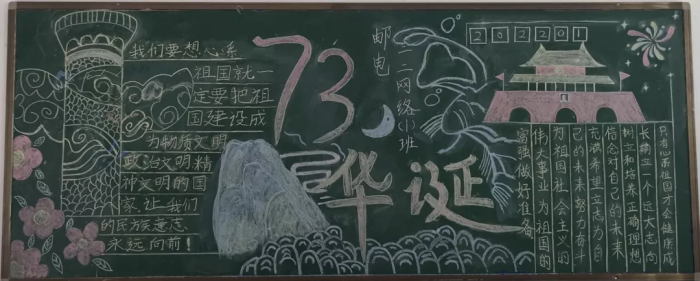 我们要想心系
祖国就一
定要把祖
国建设成
为物质文明
政治文明精
神文明的国
家,让我们
的民族意志
永远向前!
73
华诞
邮电
二网络(1)班
202201
只有心系祖国才会健康成
长,确立一个远大志向
树立和培养正确理想
信念对自己的未来
充满希望立志为自
己的未来努力奋斗
为祖国社会主义的
伟大事业为祖国的
富强做好准备